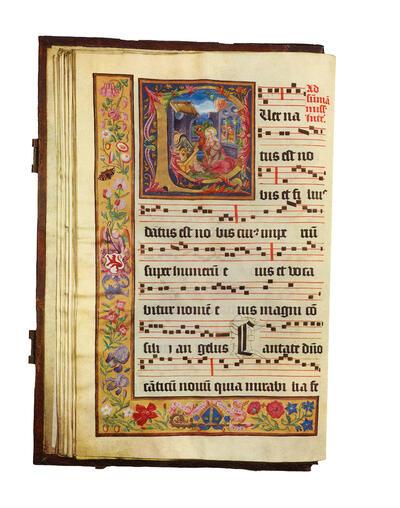 Ad
sumā
miss
PUer na
tus est no
bis et fi lius
datus est no bis cuius impe riū
super humerū e ius et voca
bitur nomē e ius magni cō
sili j an gelus Cantate dño
cāticū nouū quia mirabi lia fe